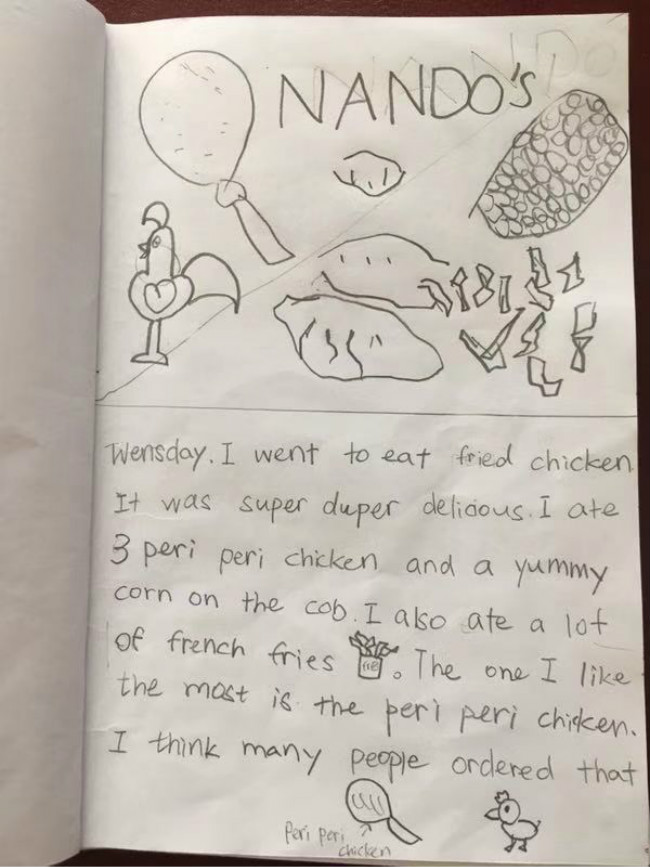 NANDO's
Wensday. I went to eat fried chicken
It was super duper delicious. I ate
3 peri peri chicken and a yummy
corn on the cob. I also ate a lot
of french fries . The one I like
the most is the peri peri chicken.
I think many people ordered that
Peri peri
chicken